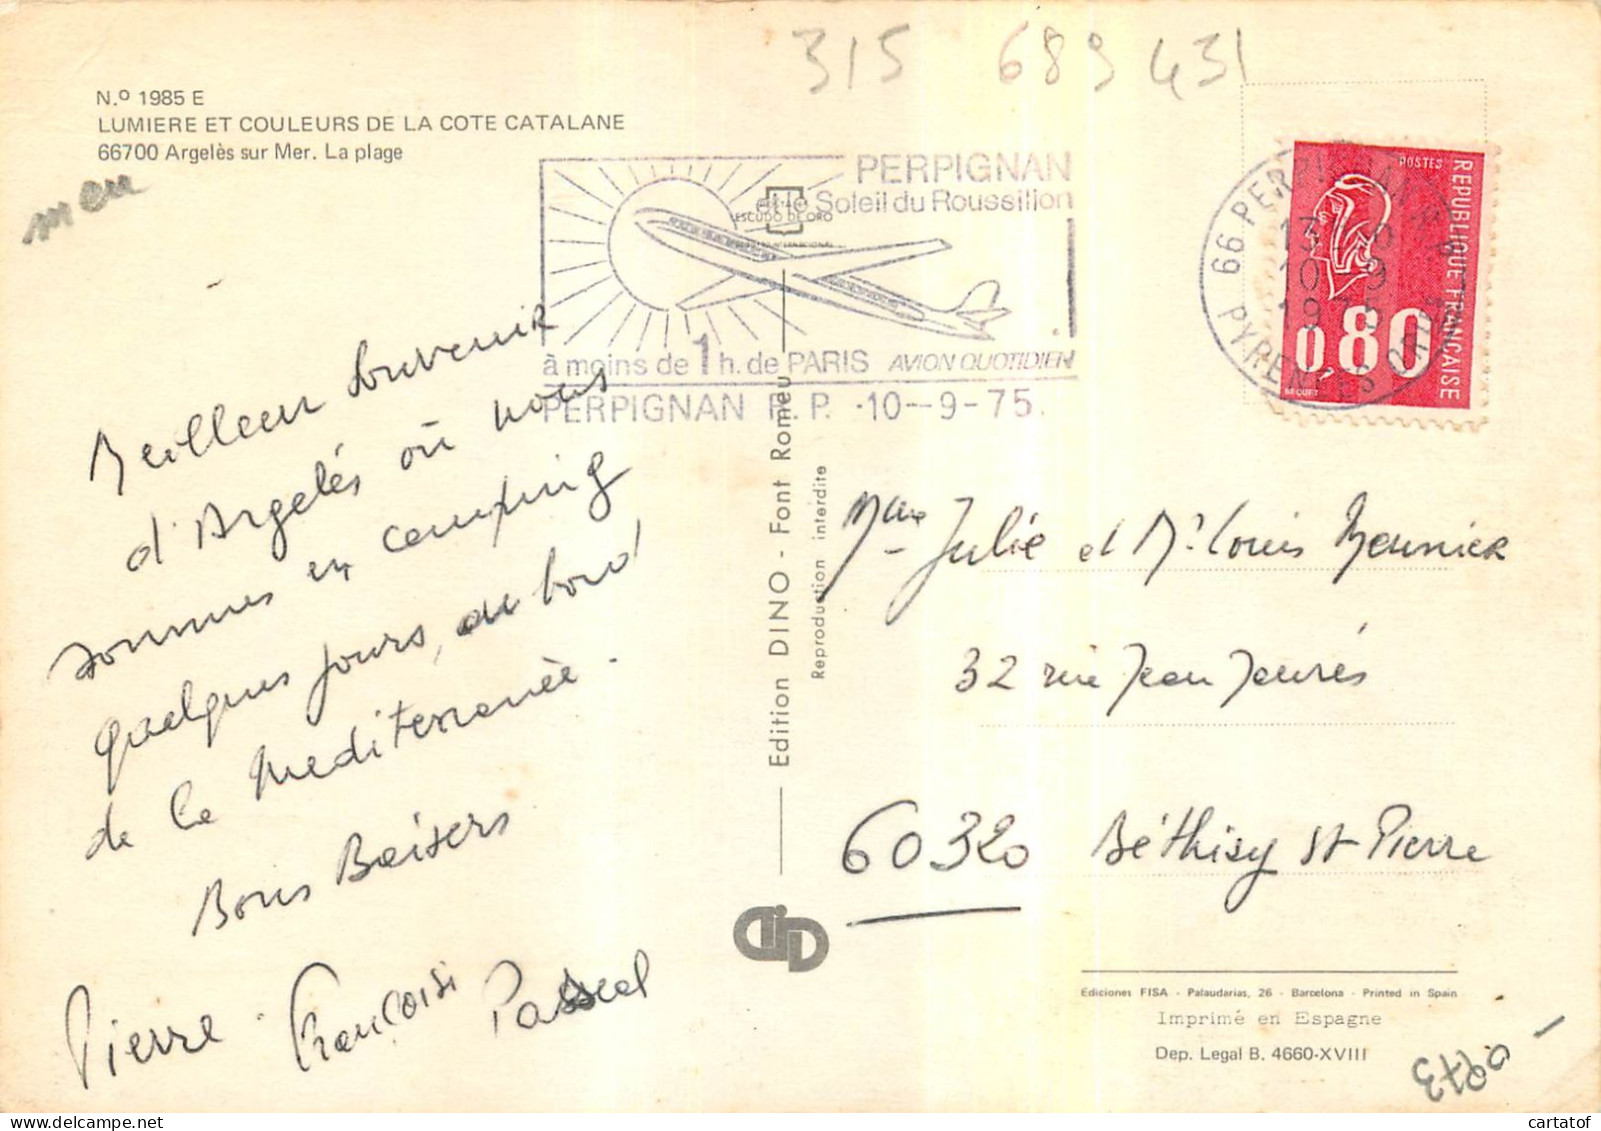 315 689 431
N.º 1985 E
LUMIERE ET COULEURS DE LA COTE CATALANE
66700 Argelès sur Mer. La plage
mer
PERPIGNAN
et le Soleil du Roussillon
ESCUDO DE ORO
à moins de 1h. de PARIS AVION QUOTIDIEN
PERPIGNAN R. P. ·10--9-75.
66 PERPIGNAN R.P.
13
10 9
1975
PYRENEES ORIENTALES
POSTES
REPUBLIQUE FRANCAISE
0,80
BEQUET
Meilleur souvenir
d'Argelés où nous
sommes en camping
quelques jours, au bord
de la Mediterranée.
Bons Baisers
Pierre - Françoise Pascal
Edition DINO - Font Romeu
Reproduction interdite
Mme Julie et Mr Louis Meunier
32 rue Jean Jaurés
60320 Béthisy St Pierre
DiD
Ediciones FISA - Palaudarias, 26 - Barcelona - Printed in Spain
Imprimé en Espagne
Dep. Legal B. 4660-XVIII
cartatof